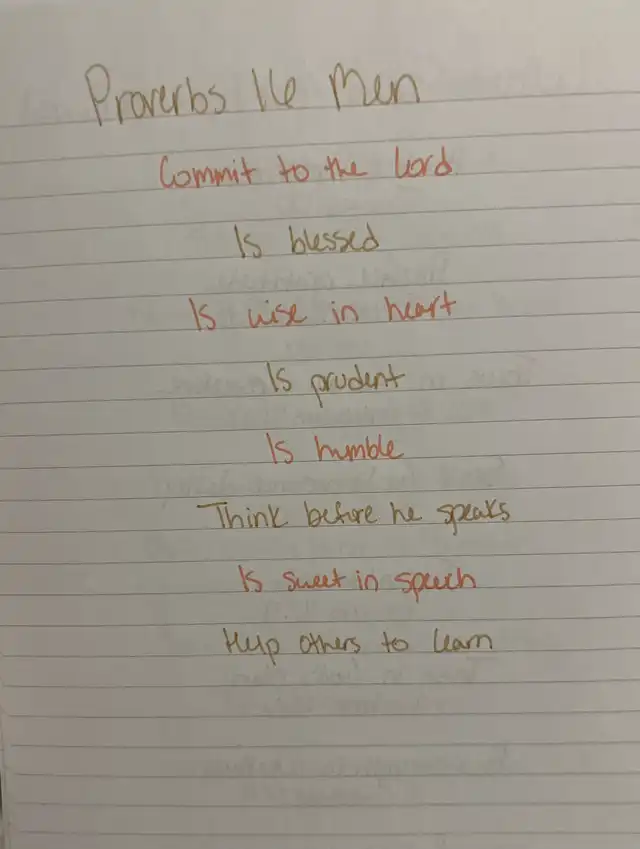 Proverbs 16 Men
Commit to the Lord
Is blessed
Is wise in heart
Is prudent
Is humble
Think before he speaks
Is sweet in speech
Help others to learn